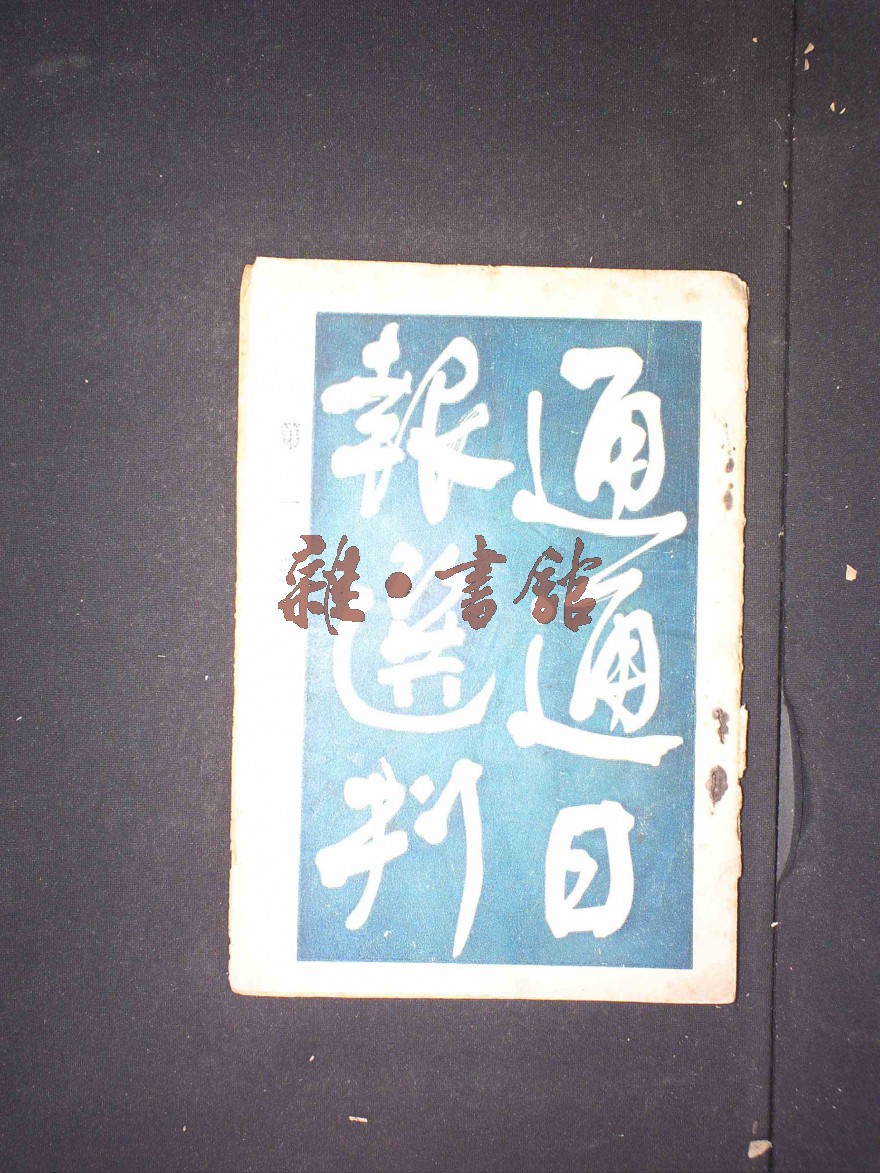 通通日
報選刊
第一
雜·書館